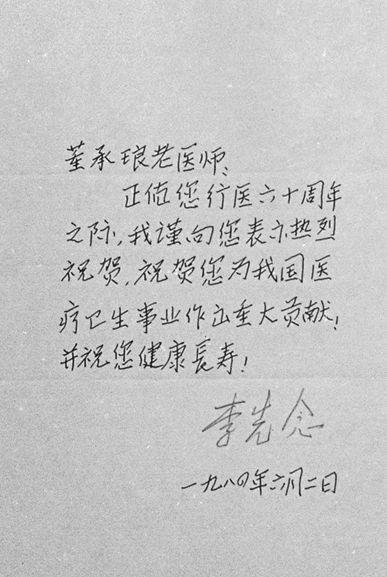 董承琅老医师：
正值您行医六十周年
之际，我谨向您表示热烈
祝贺，祝贺您为我国医
疗卫生事业作出重大贡献！
并祝您健康長寿！
李先念
一九八四年六月二日